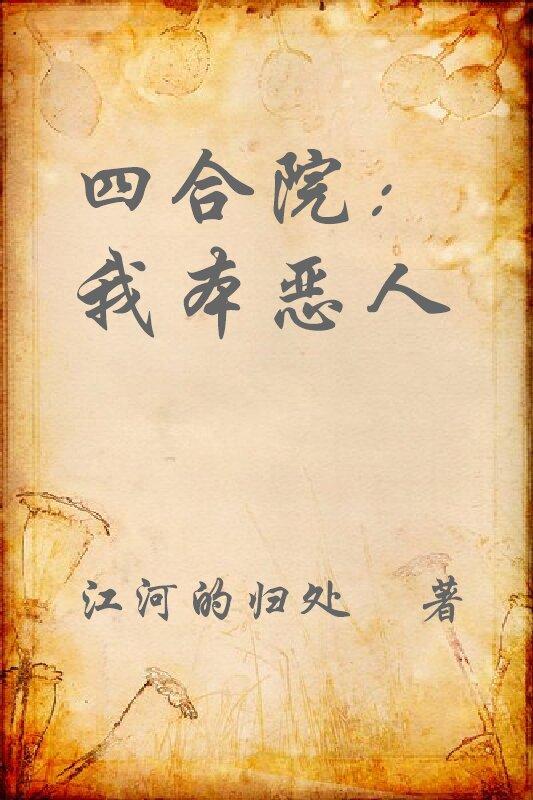 四合院：
我本恶人
江河的归处 著